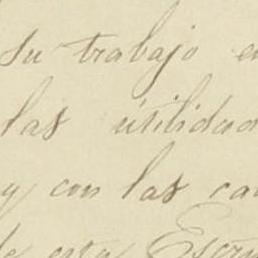 su trabajo
las utilidad
y con las
de esta Escri